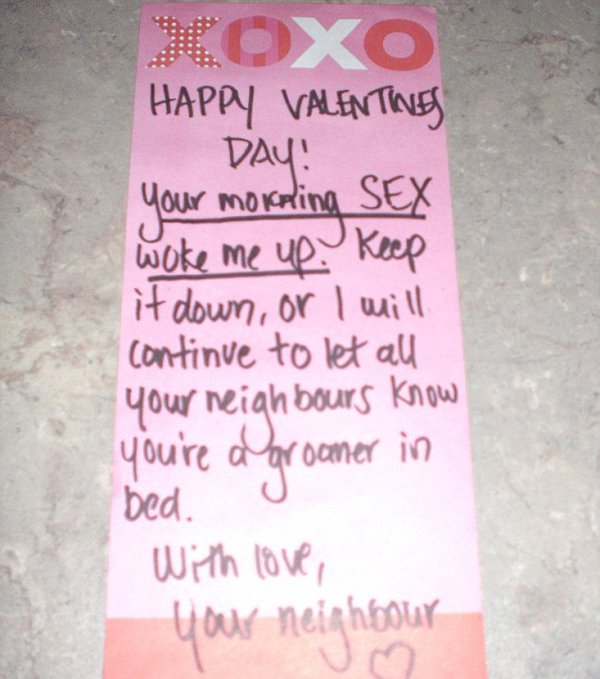 XOXO
HAPPY VALENTINES
DAY!
your morning SEX
woke me up. Keep
it down, or I will
continue to let all
your neighbours know
you're a groaner in
bed.
With love,
Your neighbour